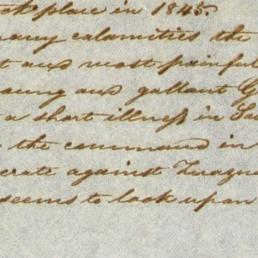 place in 1845.
many calamities the
aus most painful
young aus gallant G
a short illness in Sa
the command in
crate against
seems to look upon